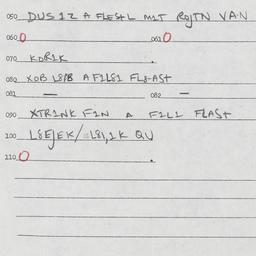 050 DUS 1Z A FLEStL M1T ROJTN VAN
060 0 061 0
070 KDR1K
080 XOB L8/B A F1L81 FL8-ASt
081 — 082 —
090 XTR1NK F1N A F1L1 FLASt
100 L8EJEK/=L81,1K QU
110 0